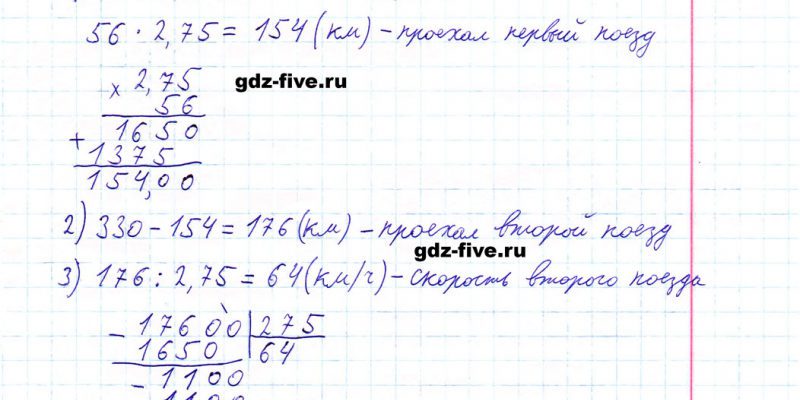 56 · 2,75 = 154 (км) – проехал первый поезд
× 2,75
gdz-five.ru
56
1650
+ 1375
154,00
2) 330 – 154 = 176 (км) – проехал второй поезд
gdz-five.ru
3) 176 : 2,75 = 64 (км/ч) – скорость второго поезда
– 17600 | 275
1650 | 64
– 1100
1100